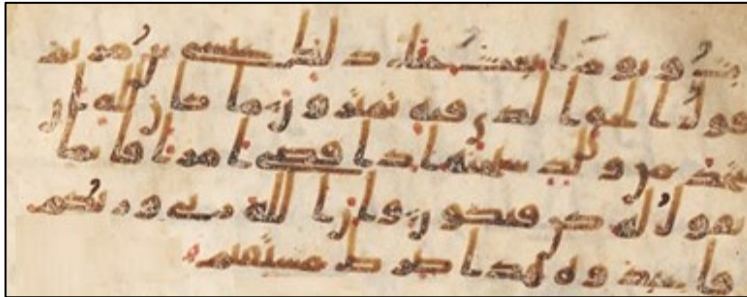 ويوم ابعث حيا ذلك عيسى ابن مريم
قول الحق الذي فيه يمترون ما كان لله ان
يتخذ من ولد سبحنه اذا قضى امرا فانما
يقول له كن فيكون وان الله ربي وربكم
فاعبدوه هذا صرط مستقيم